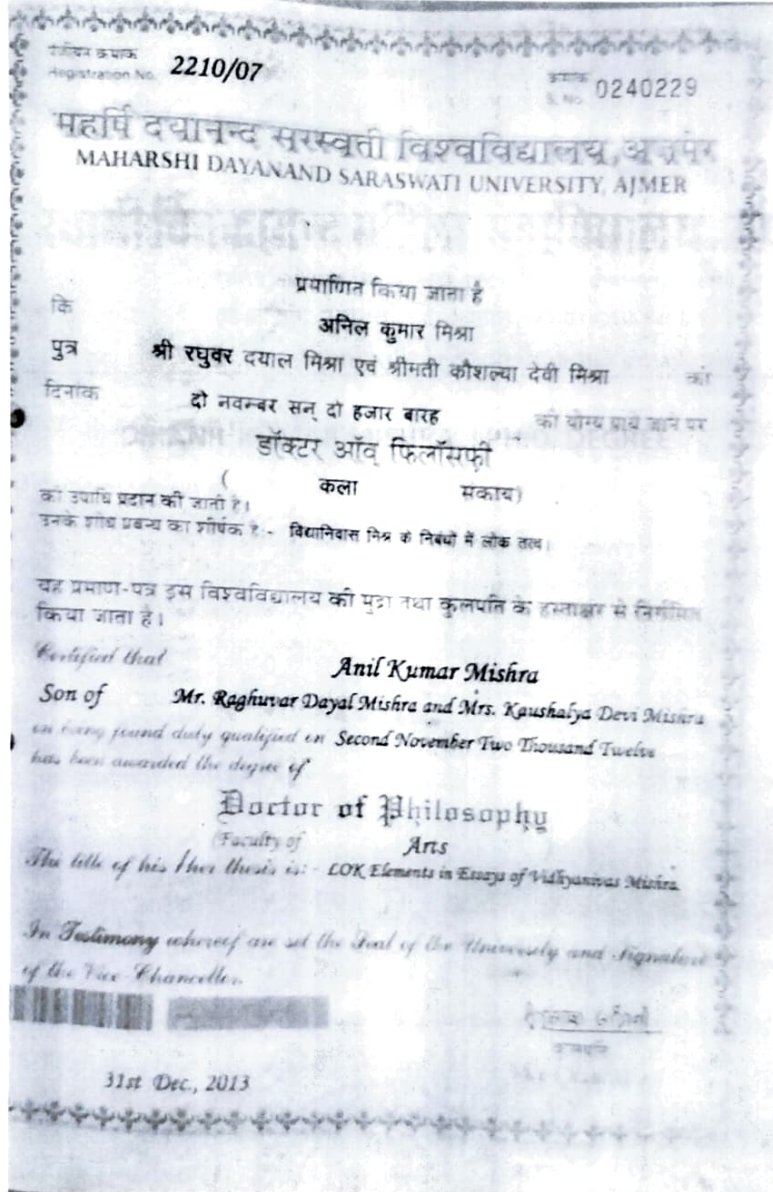 पंजीयन क्रमांक
Registration No. 2210/07
क्रमांक
S. No. 0240229
महर्षि दयानन्द सरस्वती विश्वविद्यालय, अजमेर
MAHARSHI DAYANAND SARASWATI UNIVERSITY, AJMER
प्रमाणित किया जाता है
कि अनिल कुमार मिश्रा
पुत्र श्री रघुवर दयाल मिश्रा एवं श्रीमती कौशल्या देवी मिश्रा को
दिनांक दो नवम्बर सन् दो हजार बारह को योग्य पाये जाने पर
डॉक्टर ऑव् फिलॉसफी
( कला संकाय)
की उपाधि प्रदान की जाती है।
उनके शोध प्रबन्ध का शीर्षक है:- विद्यानिवास मिश्र के निबंधों में लोक तत्व।
यह प्रमाण-पत्र इस विश्वविद्यालय की मुद्रा तथा कुलपति के हस्ताक्षर से निर्गमित
किया जाता है।
Certified that Anil Kumar Mishra
Son of Mr. Raghuvar Dayal Mishra and Mrs. Kaushalya Devi Mishra
on being found duly qualified on Second November Two Thousand Twelve
has been awarded the degree of
Doctor of Philosophy
(Faculty of Arts
The title of his / her thesis is:- LOK Elements in Essays of Vidhyanivas Mishra
In Testimony whereof are set the Seal of the University and Signature
of the Vice Chancellor.
कुलपति
31st Dec., 2013